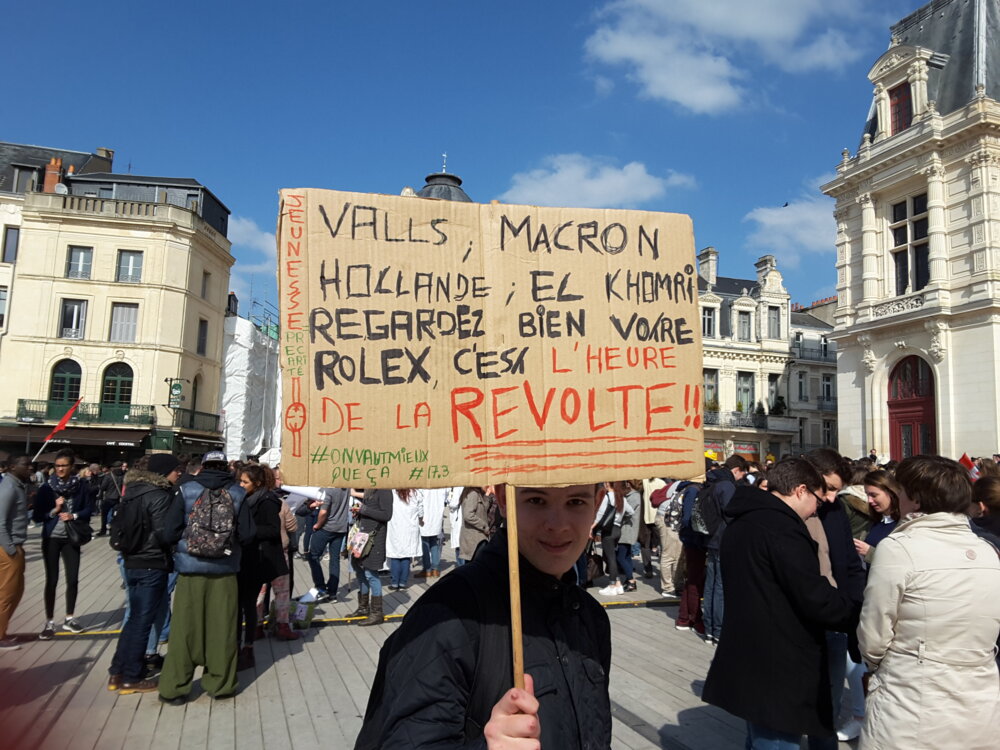 JEUNESSE
PRECARITÉ
VALLS ; MACRON
HOLLANDE ; EL KHOMRI
REGARDEZ BIEN VOTRE
ROLEX, C'EST L'HEURE
DE LA REVOLTE!!
#ONVAUTMIEUX
QUE ÇA #17.3